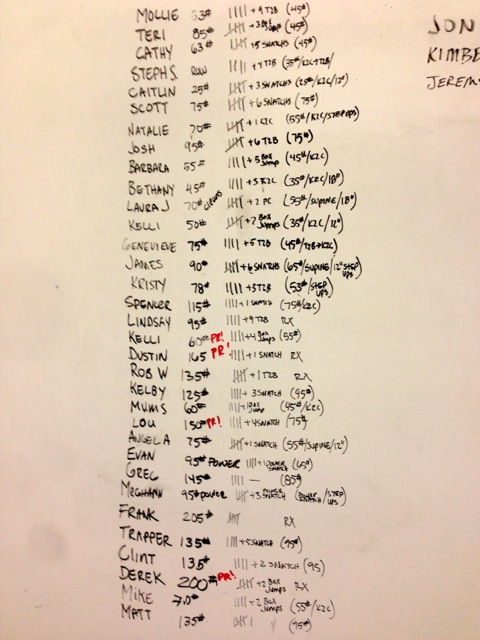 MOLLIE 53# |||| + 9 T2B (45#)
TERI 85# (45#)
CATHY 63# 15 SNATCHS (45#)
STEPH S. ROW |||| + 4 T2B (35#/K2C+T2B/
CAITLIN 25# + 3 SNATCHS (25#/K2C/12")
SCOTT 75# + 6 SNATCHS (75#)
NATALIE 70# + 1 K2C (55#/K2C/STEP UPS)
JOSH 95# + 6 T2B (75#)
BARBARA 55# |||| + 5 BOX JUMP (45#/K2C)
BETHANY 45# |||| + 5 K2C (35#/K2C/18")
LAURA J 70# + 2 PC (55#/SUPINE/18")
KELLI 50# + 2 BOX JUMPS (35#/K2C/12")
GENEVIEVE 75# |||| + 5 T2B (45#/T2B+K2C)
JAMES 90# + 6 SNATCHS (65#/SUPINE/12" STEP UPS)
KRISTY 78# |||| + 3 T2B (53#/STEP UPS)
SPENCER 115# |||| + 1 SNATCH (75#/K2C)
LINDSAY 95# |||| + 9 T2B RX
KELLI 60# PR! |||| + 4 BOX JUMPS (55#)
DUSTIN 165 PR! |||| + 1 SNATCH RX
ROB W 135# + 1 T2B RX
KELBY 125# |||| + 3 SNATCH (95#)
MUMS 60# |||| + BOX JUMP (45#/K2C)
LOU 150# PR! |||| + 4 SNATCH (75#)
ANGEL A 75# + 1 SNATCH (55#/SUPINE/12")
EVAN 95# POWER |||| + 1 POWER SNATCH (65#)
GREG 145# |||| — (85#)
MEGHANN 95# POWER + 3 POWER SNATCH (POWER SNATCH/STEP UPS)
FRANK 205# RX
TRAPPER 135# |||| + 5 SNATCH (95#)
CLINT 135# |||| + 2 SNATCH (95)
DEREK 200# PR! + 2 BOX JUMPS RX
MIKE |||| + 2 BOX JUMPS (55#/K2C)
MATT 135# (95#)
JON
KIMBE
JEREM